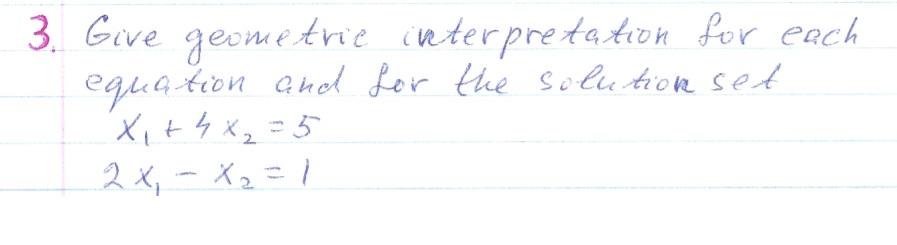 3. Give geometric interpretation for each
equation and for the solution set
x₁ + 4x₂ = 5
2x₁ - x₂ = 1